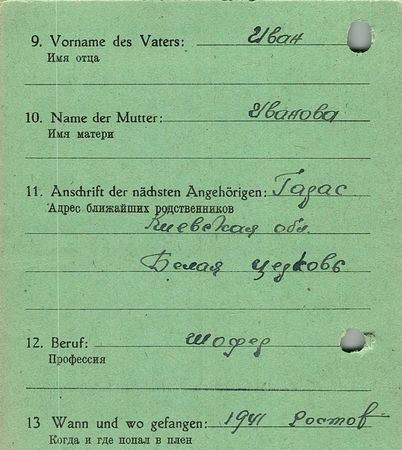 9. Vorname des Vaters: Иван
Имя отца
10. Name der Mutter: Иванова
Имя матери
11. Anschrift der nächsten Angehörigen: Гадас
Адрес ближайших родственников
Киевская обл.
Белая церковь
12. Beruf: шофер
Профессия
13 Wann und wo gefangen: 1941 Ростов
Когда и где попал в плен